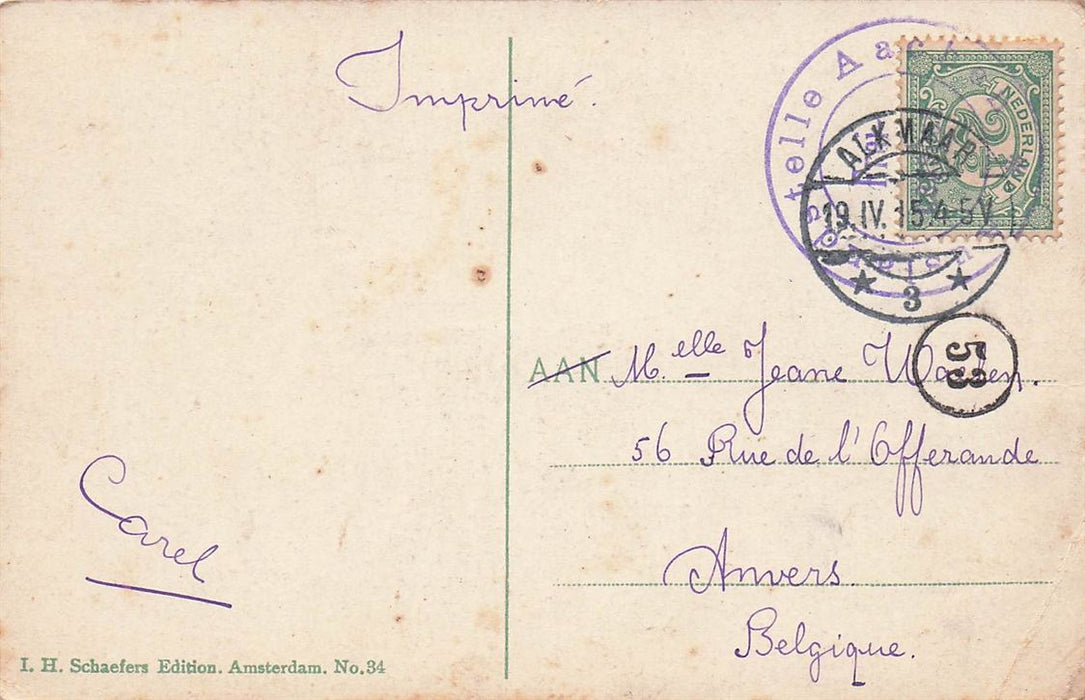 Imprimé.
NEDERLAND
2½
ALKMAAR
19.IV.15.4-5V
3
53
AAN Melle Jeane
56 Rue de l'Offerande
Anvers
Belgique.
Carel
I. H. Schaefers Edition. Amsterdam. No.34